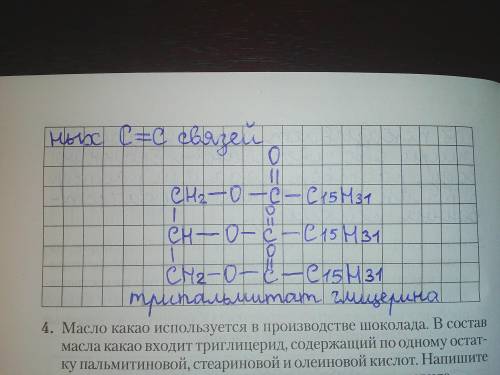 ных C=C связей
O
||
CH2 — O — C — C15H31
| O
||
CH — O — C — C15H31
| O
||
CH2 — O — C — C15H31
трипальмитат глицерина
4. Масло какао используется в производстве шоколада. В состав
масла какао входит триглицерид, содержащий по одному остат-
ку пальмитиновой, стеариновой и олеиновой кислот. Напишите